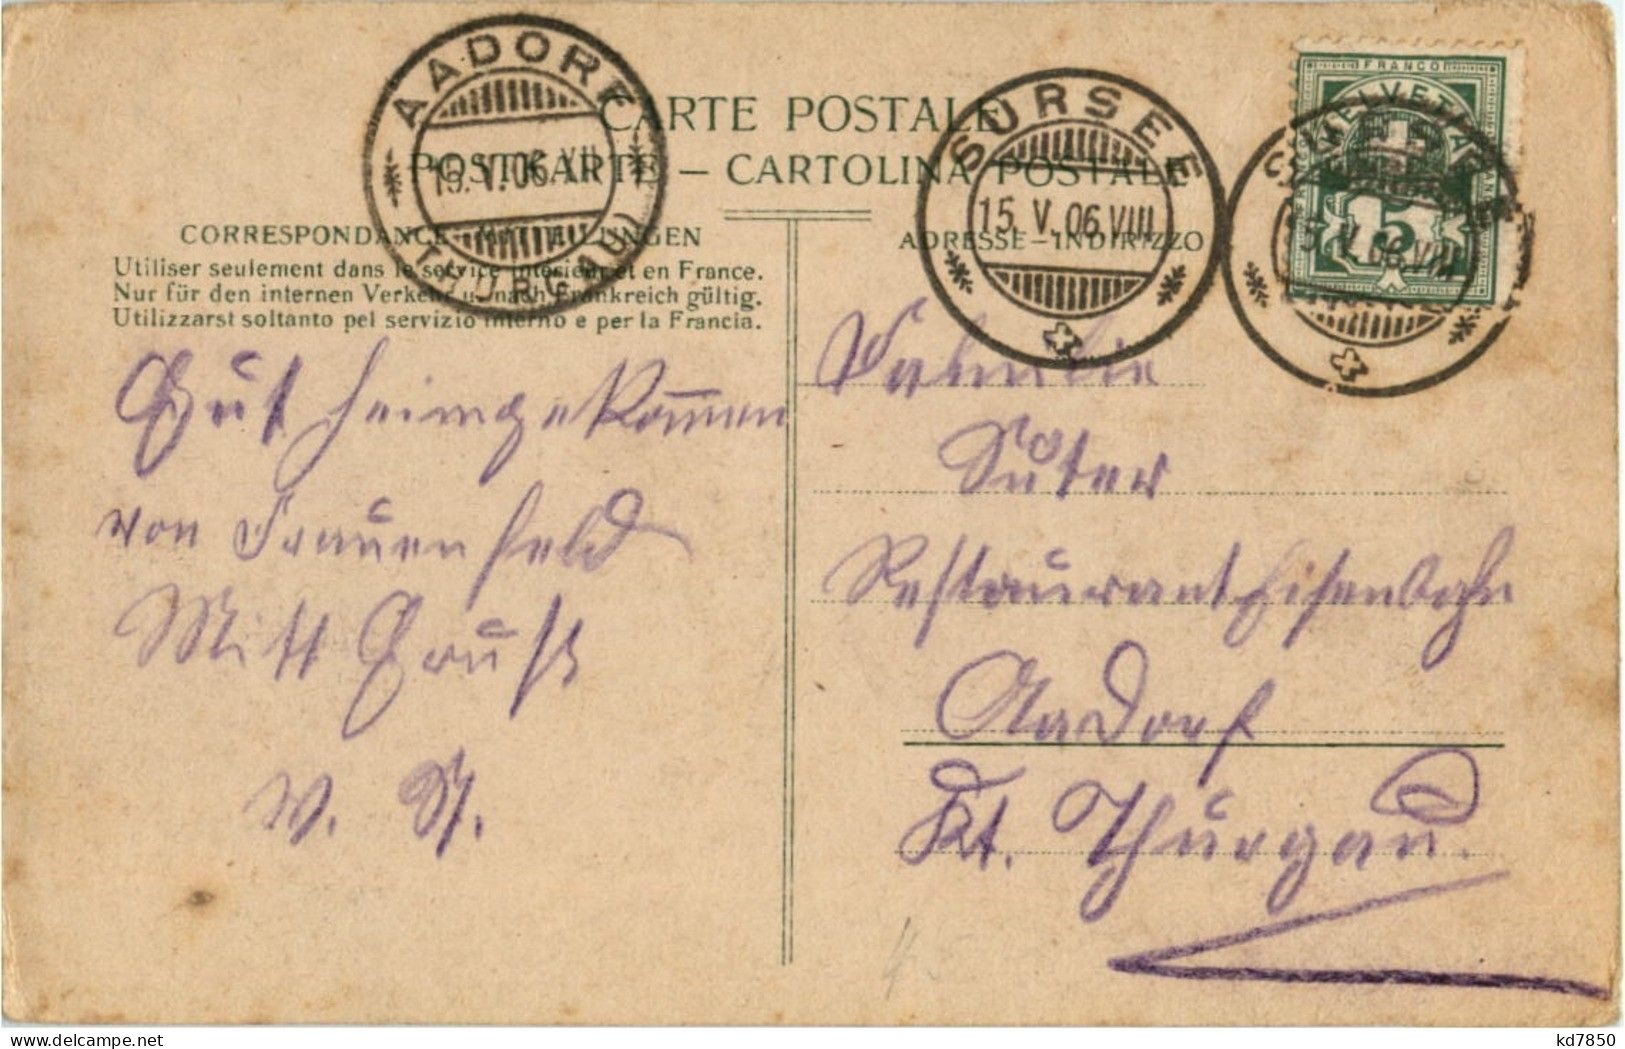 AADORF
15.V.06.VII
(THURGAU)
SURSEE
15.V.06.VIII
FRANCO
HELVETIA
5
15.V.06.VIII
CARTE POSTALE
POSTKARTE – CARTOLINA POSTALE
CORRESPONDANCE – MITTEILUNGEN
ADRESSE – INDIRIZZO
Utiliser seulement dans le service intérieur et en France.
Nur für den internen Verkehr u. nach Frankreich gültig.
Utilizzarsi soltanto pel servizio interno e per la Francia.
Gut heimgekommen
von Frauenfeld
Mitt Gruß
W. St.
Familie
Suter
Restaurant Eisenbahn
Aadorf
Kt. Thurgau.
kd7850